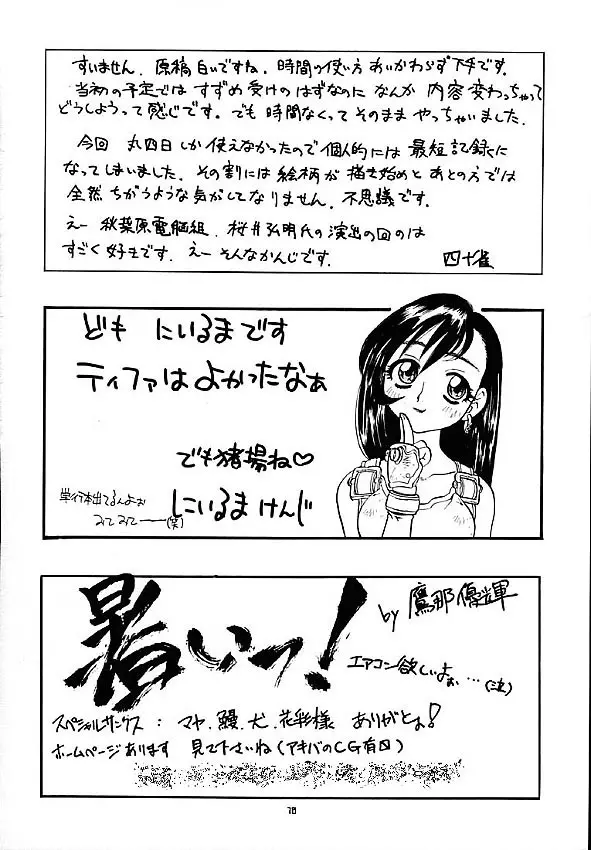 すいません、原稿白いですね、時間の使い方 あいかわらず下手です。
当初の予定では すずめ受けのはずなのに なんか 内容変わっちゃって
どうしようって感じです。でも 時間なくって そのまま やっちゃいました。
今回 丸四日しか使えなかったので個人的には 最短記録に
なってしまいました。その割には絵柄が 描き始めと あとの方では
全然 ちがうような気がしてなりません。不思議です。
えー 秋葉原電脳組、桜井弘明氏の演出の回のは
すごく好きです。えー そんなかんじです。
四十雀
ども にいるまです
ティファは よかったなぁ
でも猪場ね♡
単行本出てるんよぉ
みてみてー(笑)
にいるま けんじ
暑いっ!
by 鷹那優輝
エアコン欲しいよぉ…(泣)
スペシャルサンクス : マヤ、鰻、犬、花彩様 ありがとよ!
ホームページあります 見て下さいね(アキバのCG有り)
78